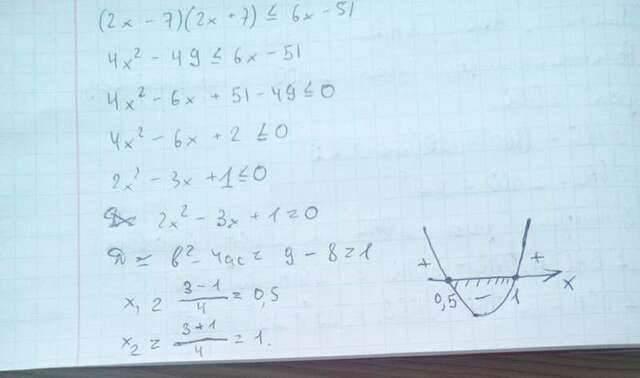 (2x - 7)(2x + 7) ≤ 6x - 51
4x² - 49 ≤ 6x - 51
4x² - 6x + 51 - 49 ≤ 0
4x² - 6x + 2 ≤ 0
2x² - 3x + 1 ≤ 0
2x² - 3x + 1 = 0
D = b² - 4ac = 9 - 8 = 1
x₁ = (3 - 1)/4 = 0,5
x₂ = (3 + 1)/4 = 1.
+ +
0,5 - 1 x